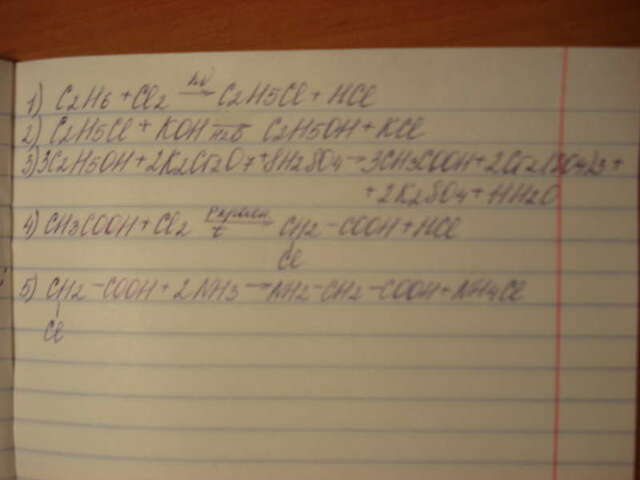 1) C2H6 + Cl2 hν→ C2H5Cl + HCl
2) C2H5Cl + KOH → C2H5OH + KCl
3) 3C2H5OH + 2K2Cr2O7 + 8H2SO4 → 3CH3COOH + 2Cr2(SO4)3 +
+ 2K2SO4 + 11H2O
4) CH3COOH + Cl2 t→ CH2 - COOH + HCl
Cl
5) CH2 - COOH + 2NH3 → NH2 - CH2 - COOH + NH4Cl
Cl